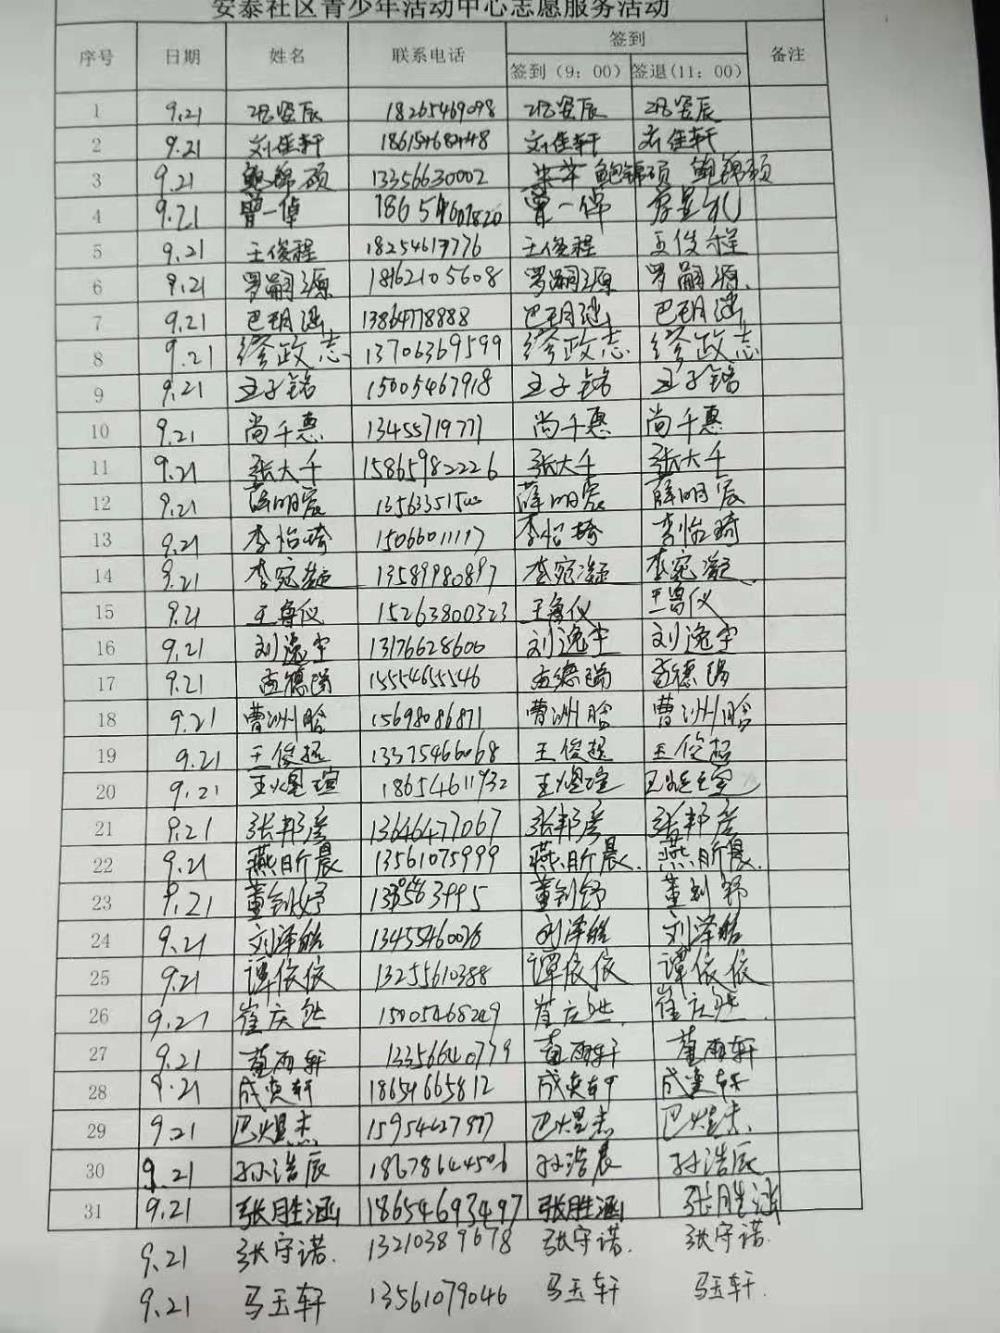 安泰社区青少年活动中心志愿服务活动
序号 日期 姓名 联系电话 签到 备注
签到(9：00) 签退(11：00)
1 9.21 18265469098
2 9.21 刘佳轩 刘佳轩 刘佳轩
3 9.21 鲍锦硕 13356630002 鲍锦硕 鲍锦硕
4 9.21 曾一倬 18654607820 曾一倬
5 9.21 王俊程 18254617776 王俊程 王俊程
6 9.21 罗嗣源 18162105608 罗嗣源 罗嗣源
7 9.21 巴玥涵 13864778888 巴玥涵 巴玥涵
8 9.21 缪政志 13706369599 缪政志 缪政志
9 9.21 王子铭 15005467918 王子铭 王子铭
10 9.21 尚千惠 13455719777 尚千惠 尚千惠
11 9.21 张大千 15865982226 张大千 张大千
12 9.21 薛明宸 薛明宸 薛明宸
13 9.21 李怡琦 15066011117 李怡琦 李怡琦
14 9.21 李宛凝 13589980897 李宛凝 李宛凝
15 9.21 王鲁仪 15263800323 王鲁仪 王鲁仪
16 9.21 刘逸宇 13176628600 刘逸宇 刘逸宇
17 9.21 孟德瑞 15554655546 孟德瑞 孟德瑞
18 9.21 曹洲晗 15698086871 曹洲晗 曹洲晗
19 9.21 王俊超 13375466068 王俊超 王俊超
20 9.21 王煜瑄 18654611932 王煜瑄
21 9.21 张邦彦 13646477067 张邦彦 张邦彦
22 9.21 燕昕晨 13561075999 燕昕晨. 燕昕晨.
23 9.21
24 9.21 刘泽皓 13455460028 刘泽皓 刘泽皓
25 9.21 谭依依 13255610388 谭依依 谭依依
26 9.21 15005468249
27 9.21 董雨轩 13356640779 董雨轩 董雨轩
28 9.21 成奕轩 18654665812 成奕轩 成奕轩
29 9.21 巴煜杰 15954627977 巴煜杰 巴煜杰
30 9.21 孙浩辰 18678644506 孙浩辰 孙浩辰
31 9.21 张胜涵 18654693497 张胜涵 张胜涵
9.21 张守诺 13210389678 张守诺. 张守诺.
9.21 马玉轩 13561079046 马玉轩 马玉轩.